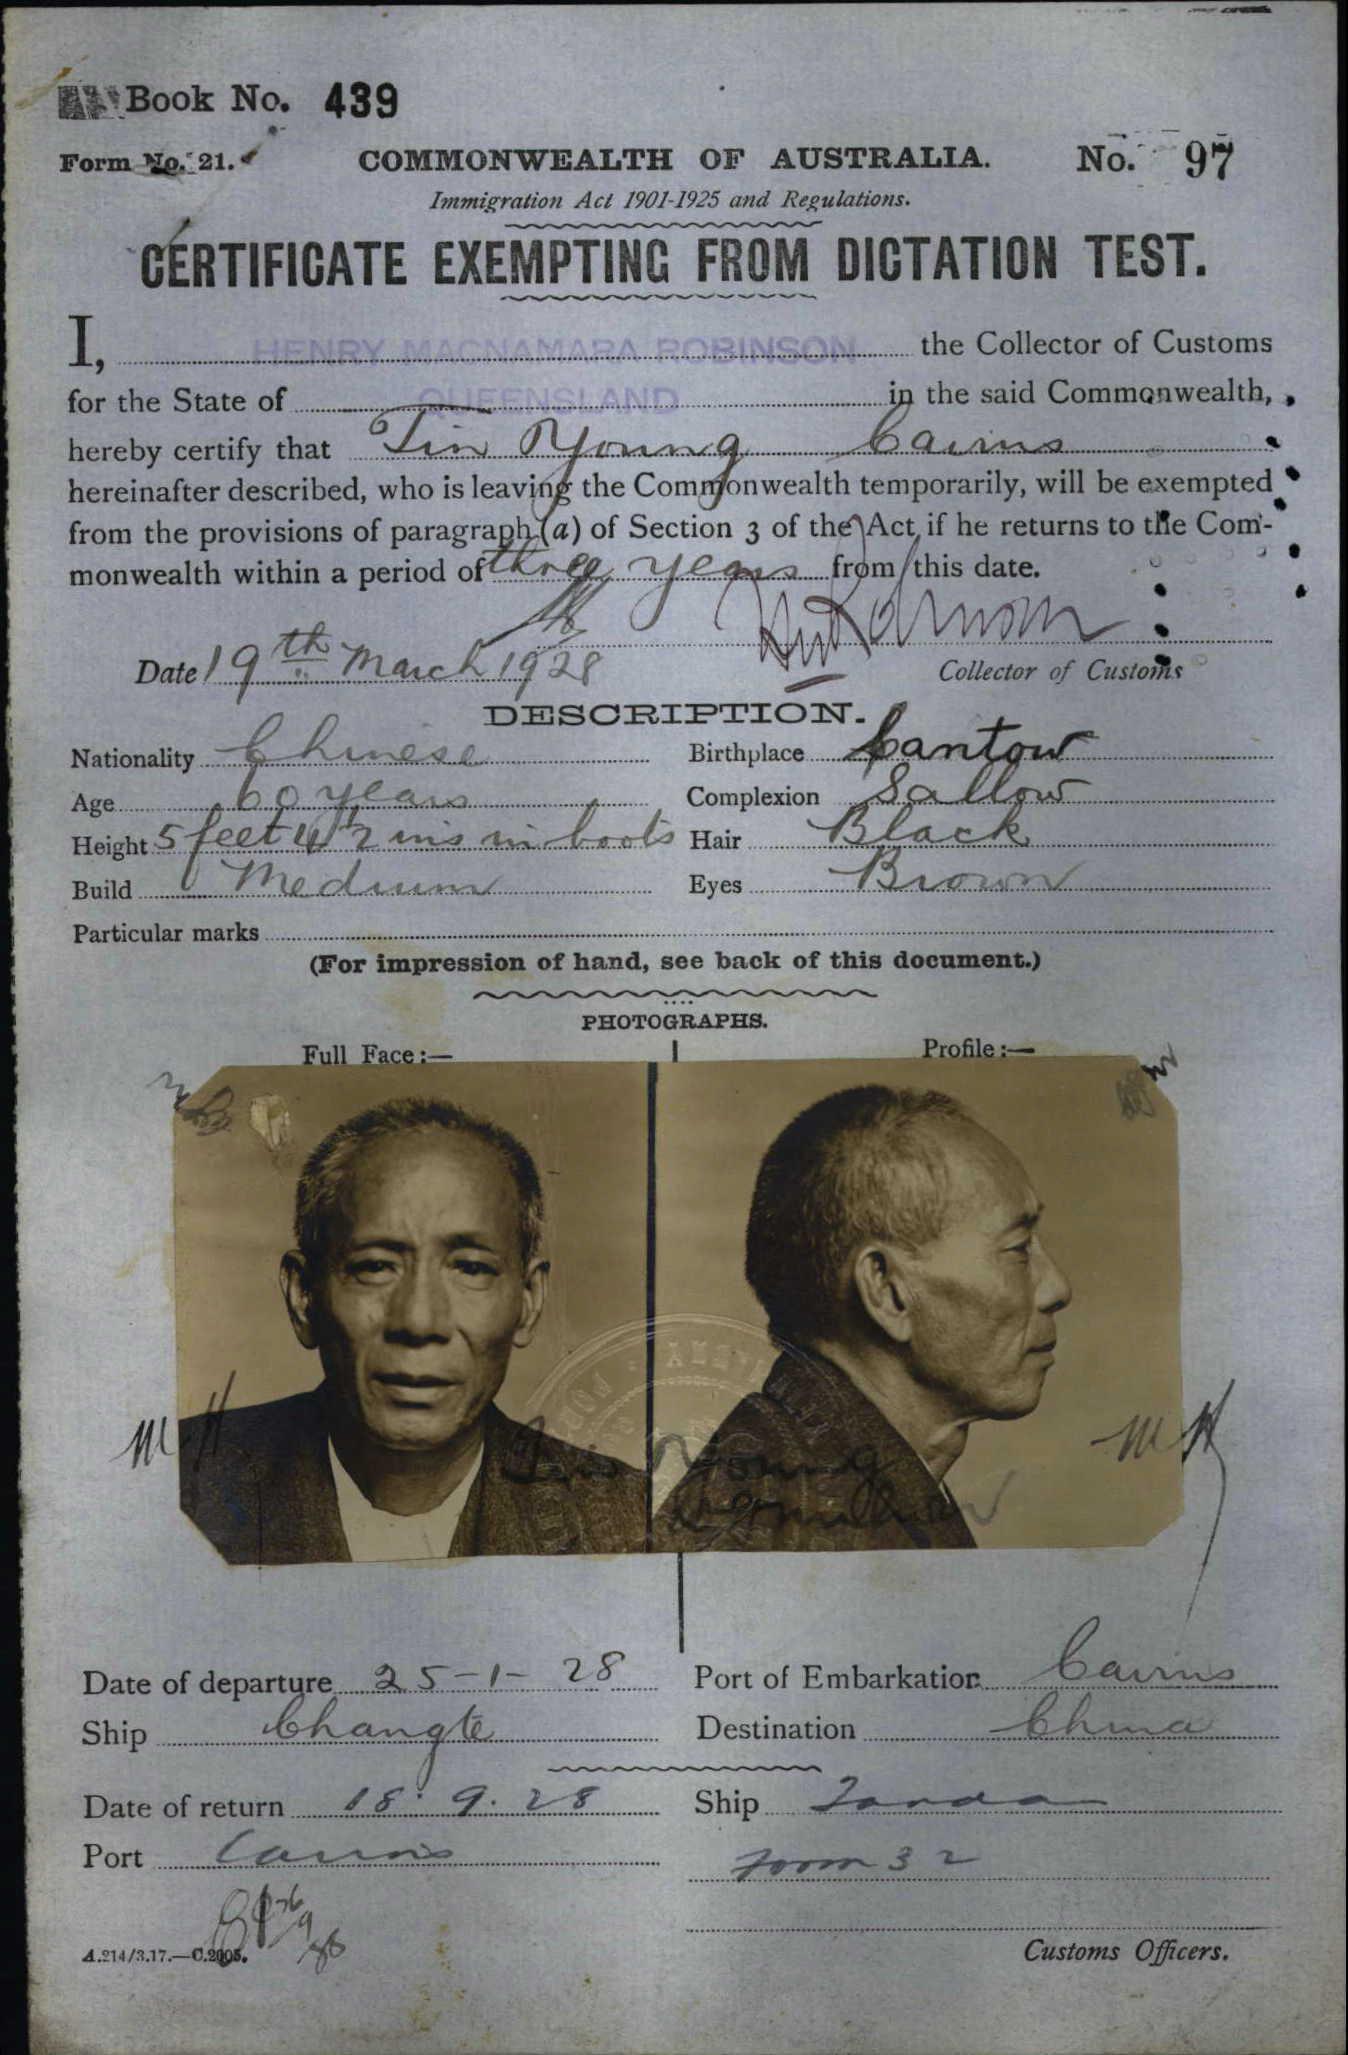 Book No. 439
Form No. 21. COMMONWEALTH OF AUSTRALIA. No. 97
Immigration Act 1901-1925 and Regulations.
CERTIFICATE EXEMPTING FROM DICTATION TEST.
I, HENRY MACNAMARA ROBINSON the Collector of Customs
for the State of QUEENSLAND in the said Commonwealth,
hereby certify that Tin Young Cairns
hereinafter described, who is leaving the Commonwealth temporarily, will be exempted
from the provisions of paragraph (a) of Section 3 of the Act if he returns to the Com-
monwealth within a period of three years from this date.
Date 19th March 1928 Collector of Customs
DESCRIPTION.
Nationality Chinese Birthplace Canton
Age 60 years Complexion Sallow
Height 5 feet 4 1/2 ins in boots Hair Black
Build Medium Eyes Brown
Particular marks
(For impression of hand, see back of this document.)
PHOTOGRAPHS.
Full Face:— Profile:—
M H M H
Tin Young
Date of departure 25-1-28 Port of Embarkation Cairns
Ship Changte Destination China
Date of return 18.9.28 Ship Tanda
Port Cairns Form 32
A.214/3.17.—C.2005. Customs Officers.